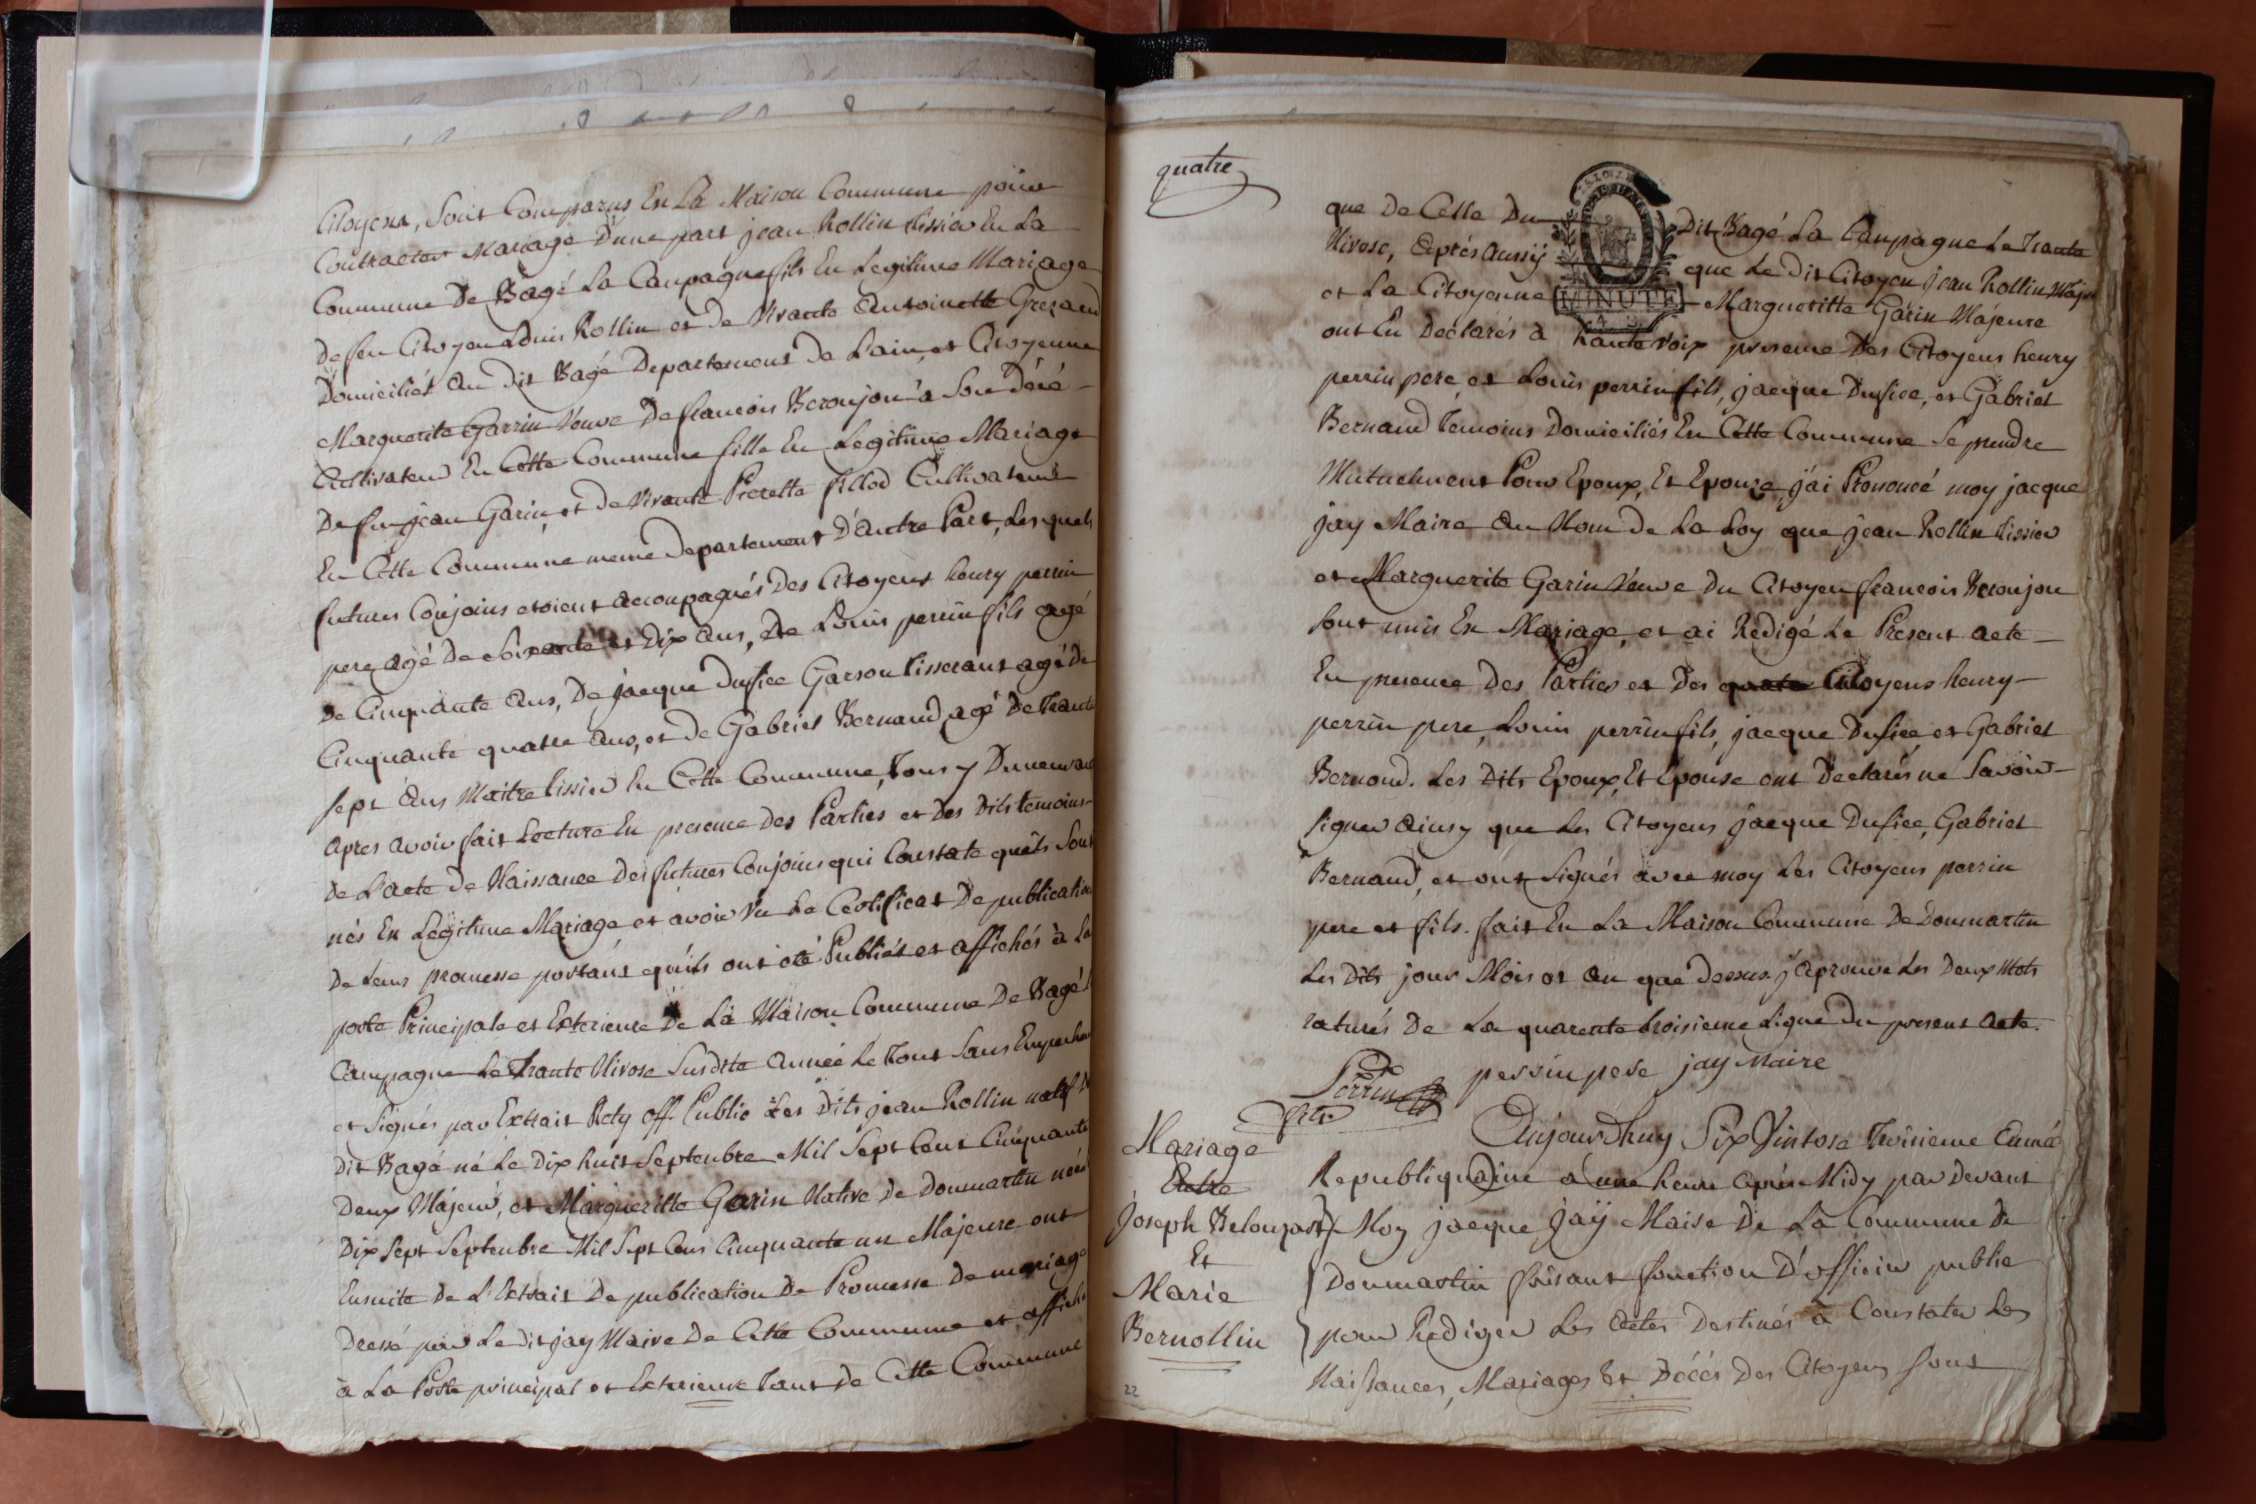 Citoyens, Sont Comparus En La Maison Commune pour
Contracter Mariage D'une part jean Rollin tissier En La
Commune De Bagé La Campagne fils En Legitime Mariage
De feu Citoyen Louis Rollin et de vivante Antoinette
Domiciliés au dit Bagé Departement de Lain, et Citoyenne
Marguerite Garrin Veuve De francois Beronjon à Son décé
Cultivateur En Cette Commune fille En Legitime Mariage
De feu jean Garin, et de vivante Pierrette fillod Cultivateurs
En Cette Commune meme departement D'autre Part, Les quels
futurs Conjoins etoient accompagnés Des Citoyens henry perrin
pere agé De Soixante et Dix ans, De Louis perrin fils agé
De Cinquante ans, De jacque Dufice Garson tisserant agé de
Cinquante quatre ans, et de Gabriel Bernaud agé De Trante
sept ans Maitre tissier En Cette Commune, Tous y
apres avoir fait Lecture En presence Des Parties et Des Dits temoins
De L'acte De Naissance Des futures Conjoins qui Constate quéls Sont
nés En Legitime Mariage et avoir Vu Le Certificat De publication
De Leurs promesse portant quéls ont été Publiés et affichés à La
porte Principale et Exterieure De La Maison Commune De Bagé
Campagne Le Trante Nivose Susdite année Le Tout Sans
et Signés par Extrait Rety off. Public Les Dits jean Rollin natif
dit Bagé né Le Dix huit Septenbre Mil Sept Cent Cinquante
Deux Májeur, et Margueritte Garin Native de Donmartin née
Dix Sept Septenbre Mil Sept Cens Cinquante un Majeure ont
Ensuite de L'Extrait De publication De Promesse De mariage
Dressé par Le Dit jay Maire De Cette Commune et affiché
à La Porte principal et Exterieure Tant de Cette Commune
quatre
que De Celle Du Dit Bagé La Campagne Le Trante
Nivose, Aprés aussy que Le dit Citoyen jean Rollin
et La Citoyenne MINUTE Margueritte Garin Májeure
ont En Déclarés à haute voix presence Des Citoyens henry
perrin pere, et Louis perrin fils, jacque Dufice, et Gabriel
Bernaud Temoins Domiciliés En Cette Commune Se prendre
Mutuelment Pour Epoux, Et Epouze j'ai Prononcé moy jacque
jay Maire au Nom de La Loy que jean Rollin tissier
et Marguerite Garin Veuve Du Citoyen francois Beronjon
Sont unis En Mariage, et ai Redigé Le Present acte
En presence Des Parties et Des quatre Citoyens henry
perrin pere, Louis perrin fils, jacque Dufice, et Gabriel
Bernaud. Les Dits Epoux, Et Epouse ont Declarés ne Savoir
Signer ainsy que Les Citoyens jacque Dufice, Gabriel
Bernaud, et ont Signés avec moy Les Citoyens perrin
pere et fils. fait En La Maison Commune De Donmartin
Les Dits jour Mois et an que dessus. j'aprouve Les Deux Mots
raturés De La quarente troisieme Ligne Du present acte.
Perrin fils perrin pere jay Maire
Mariage
Entre
Joseph
Et
Marie
Bernollin
Aujourdhuy Six Vintose Troisieme Année
Republiquaine à une heure aprés Midy par Devant
Moy jacque Jay Maire De La Commune De
Donmartin faisant fonction D'officier public
pour Rediger Les actes Destinés à Constater Les
Naissances, Mariages Et Décés Des Citoyens sont
22